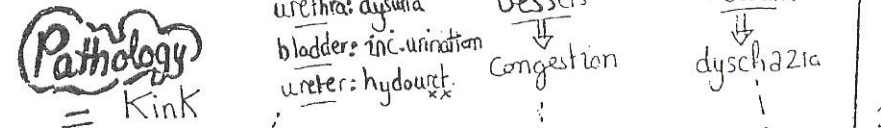 Pathology
= Kink
urethra: dysuria
bladder: inc. urination
ureter: hydouret.
Vessels
⇓
Congestion
⇓
dyschazia